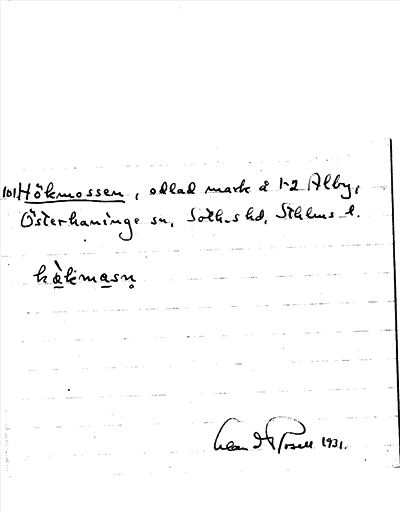 101 Hökmossen, odlad mark å 1-2 Alby,
Österhaninge sn, Soth.s hd, Sthlms l.
hä̀kmasn̥
Rosell 1931.